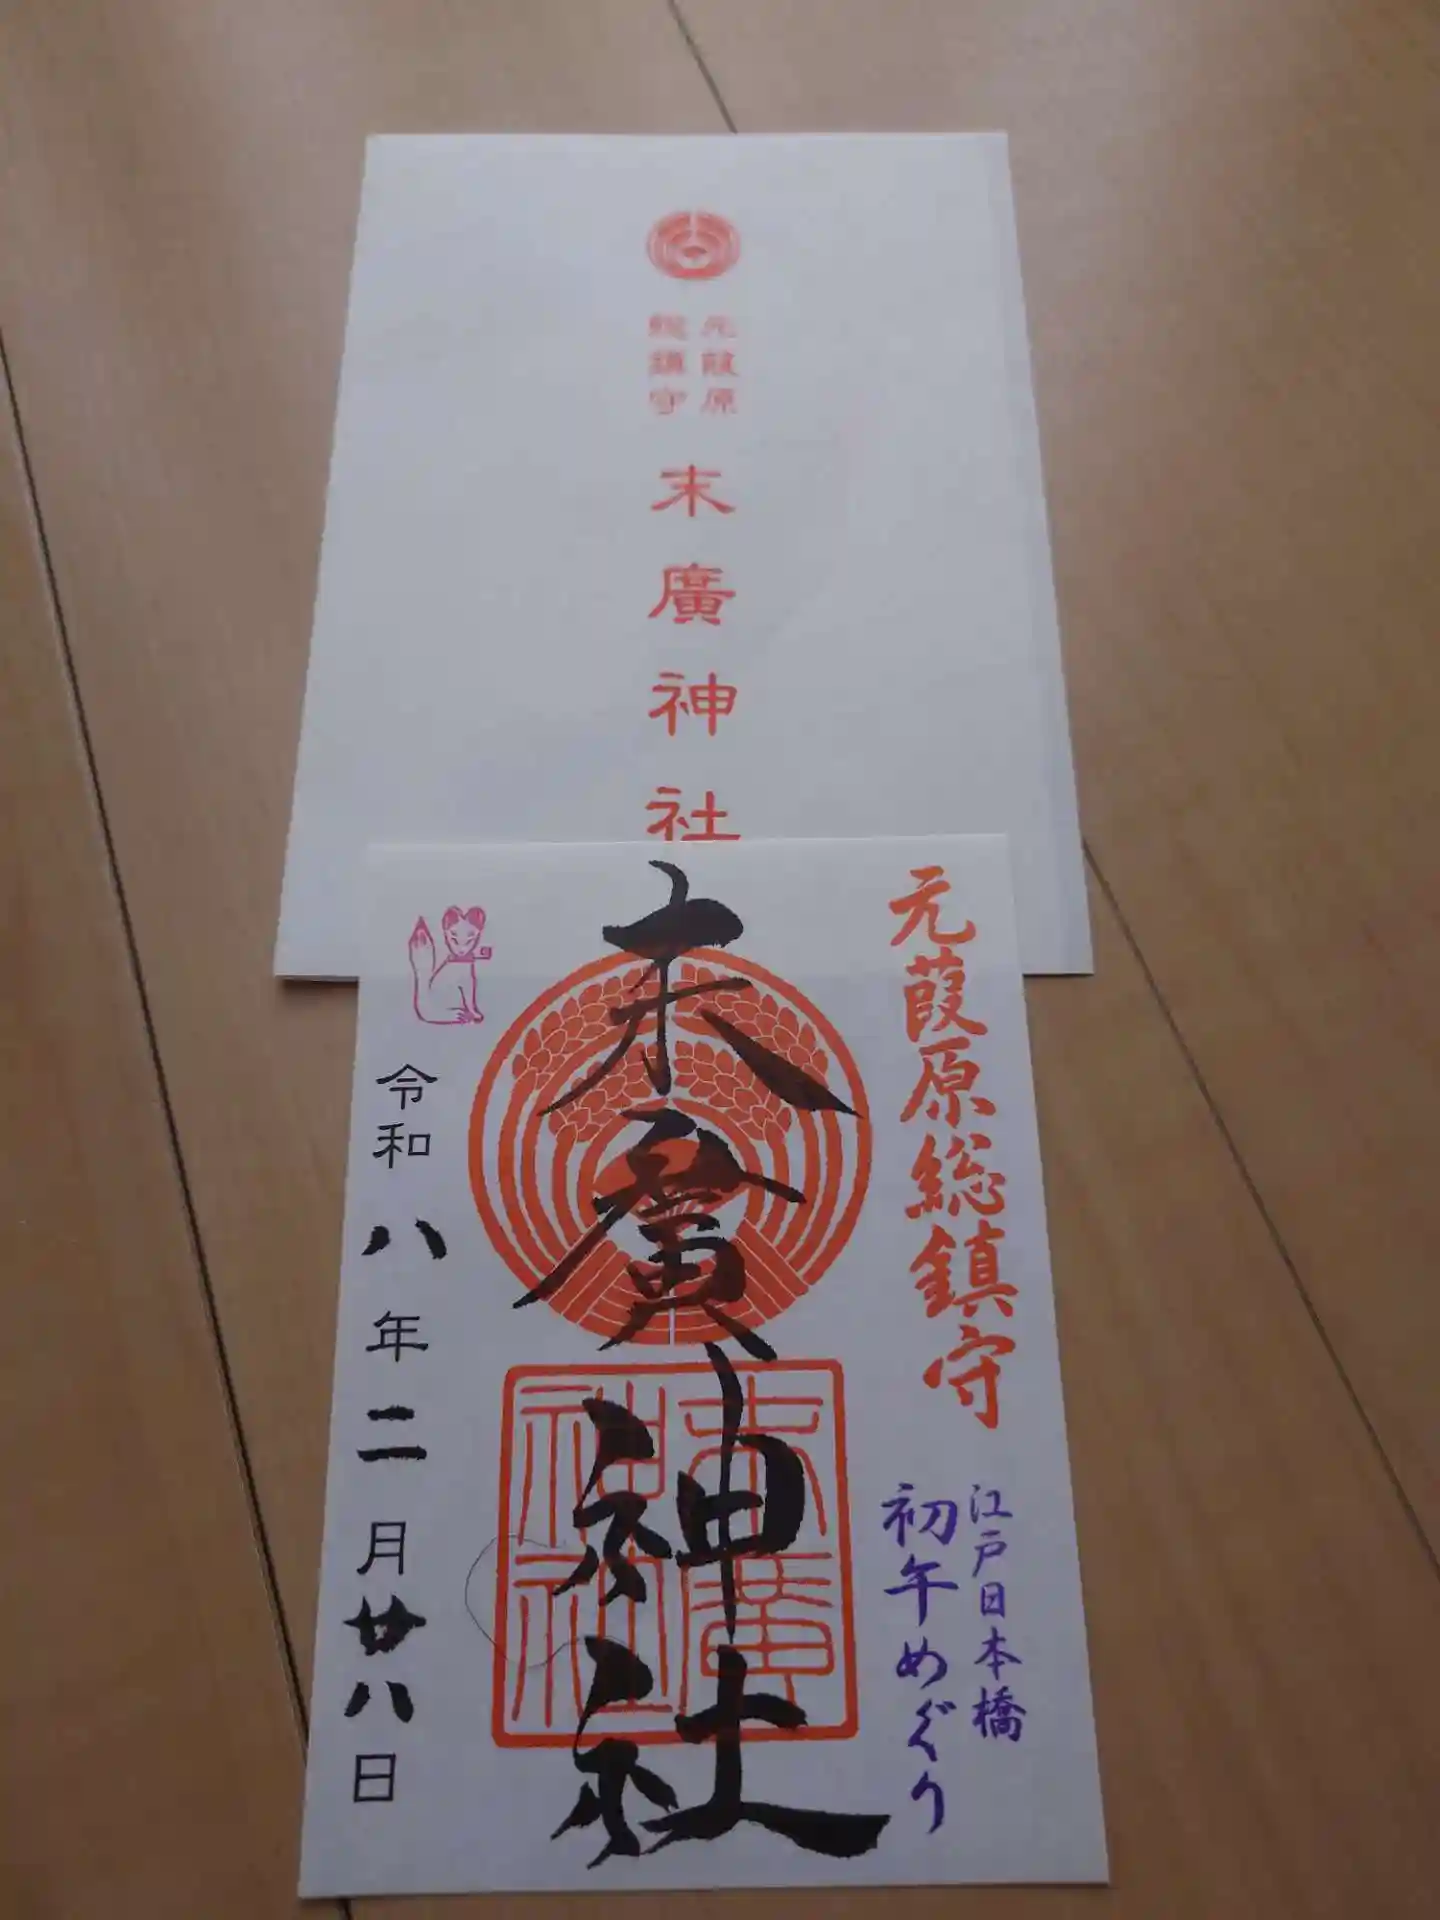 元葭原
総鎮守
末廣神社
元葭原総鎮守
江戸日本橋
初午めぐり
末廣神社
末廣
神社
令和八年二月廿八日